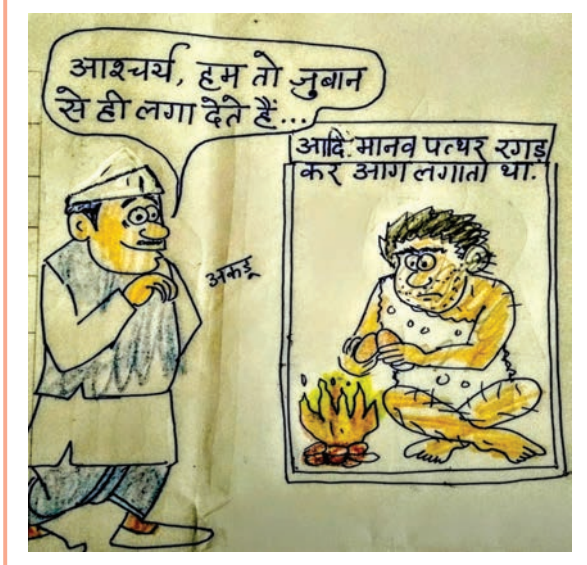 आश्चर्य, हम तो जुबान
से ही लगा देते हैं...
आदि मानव पत्थर रगड़
कर आग लगाता था.
अकड़ू